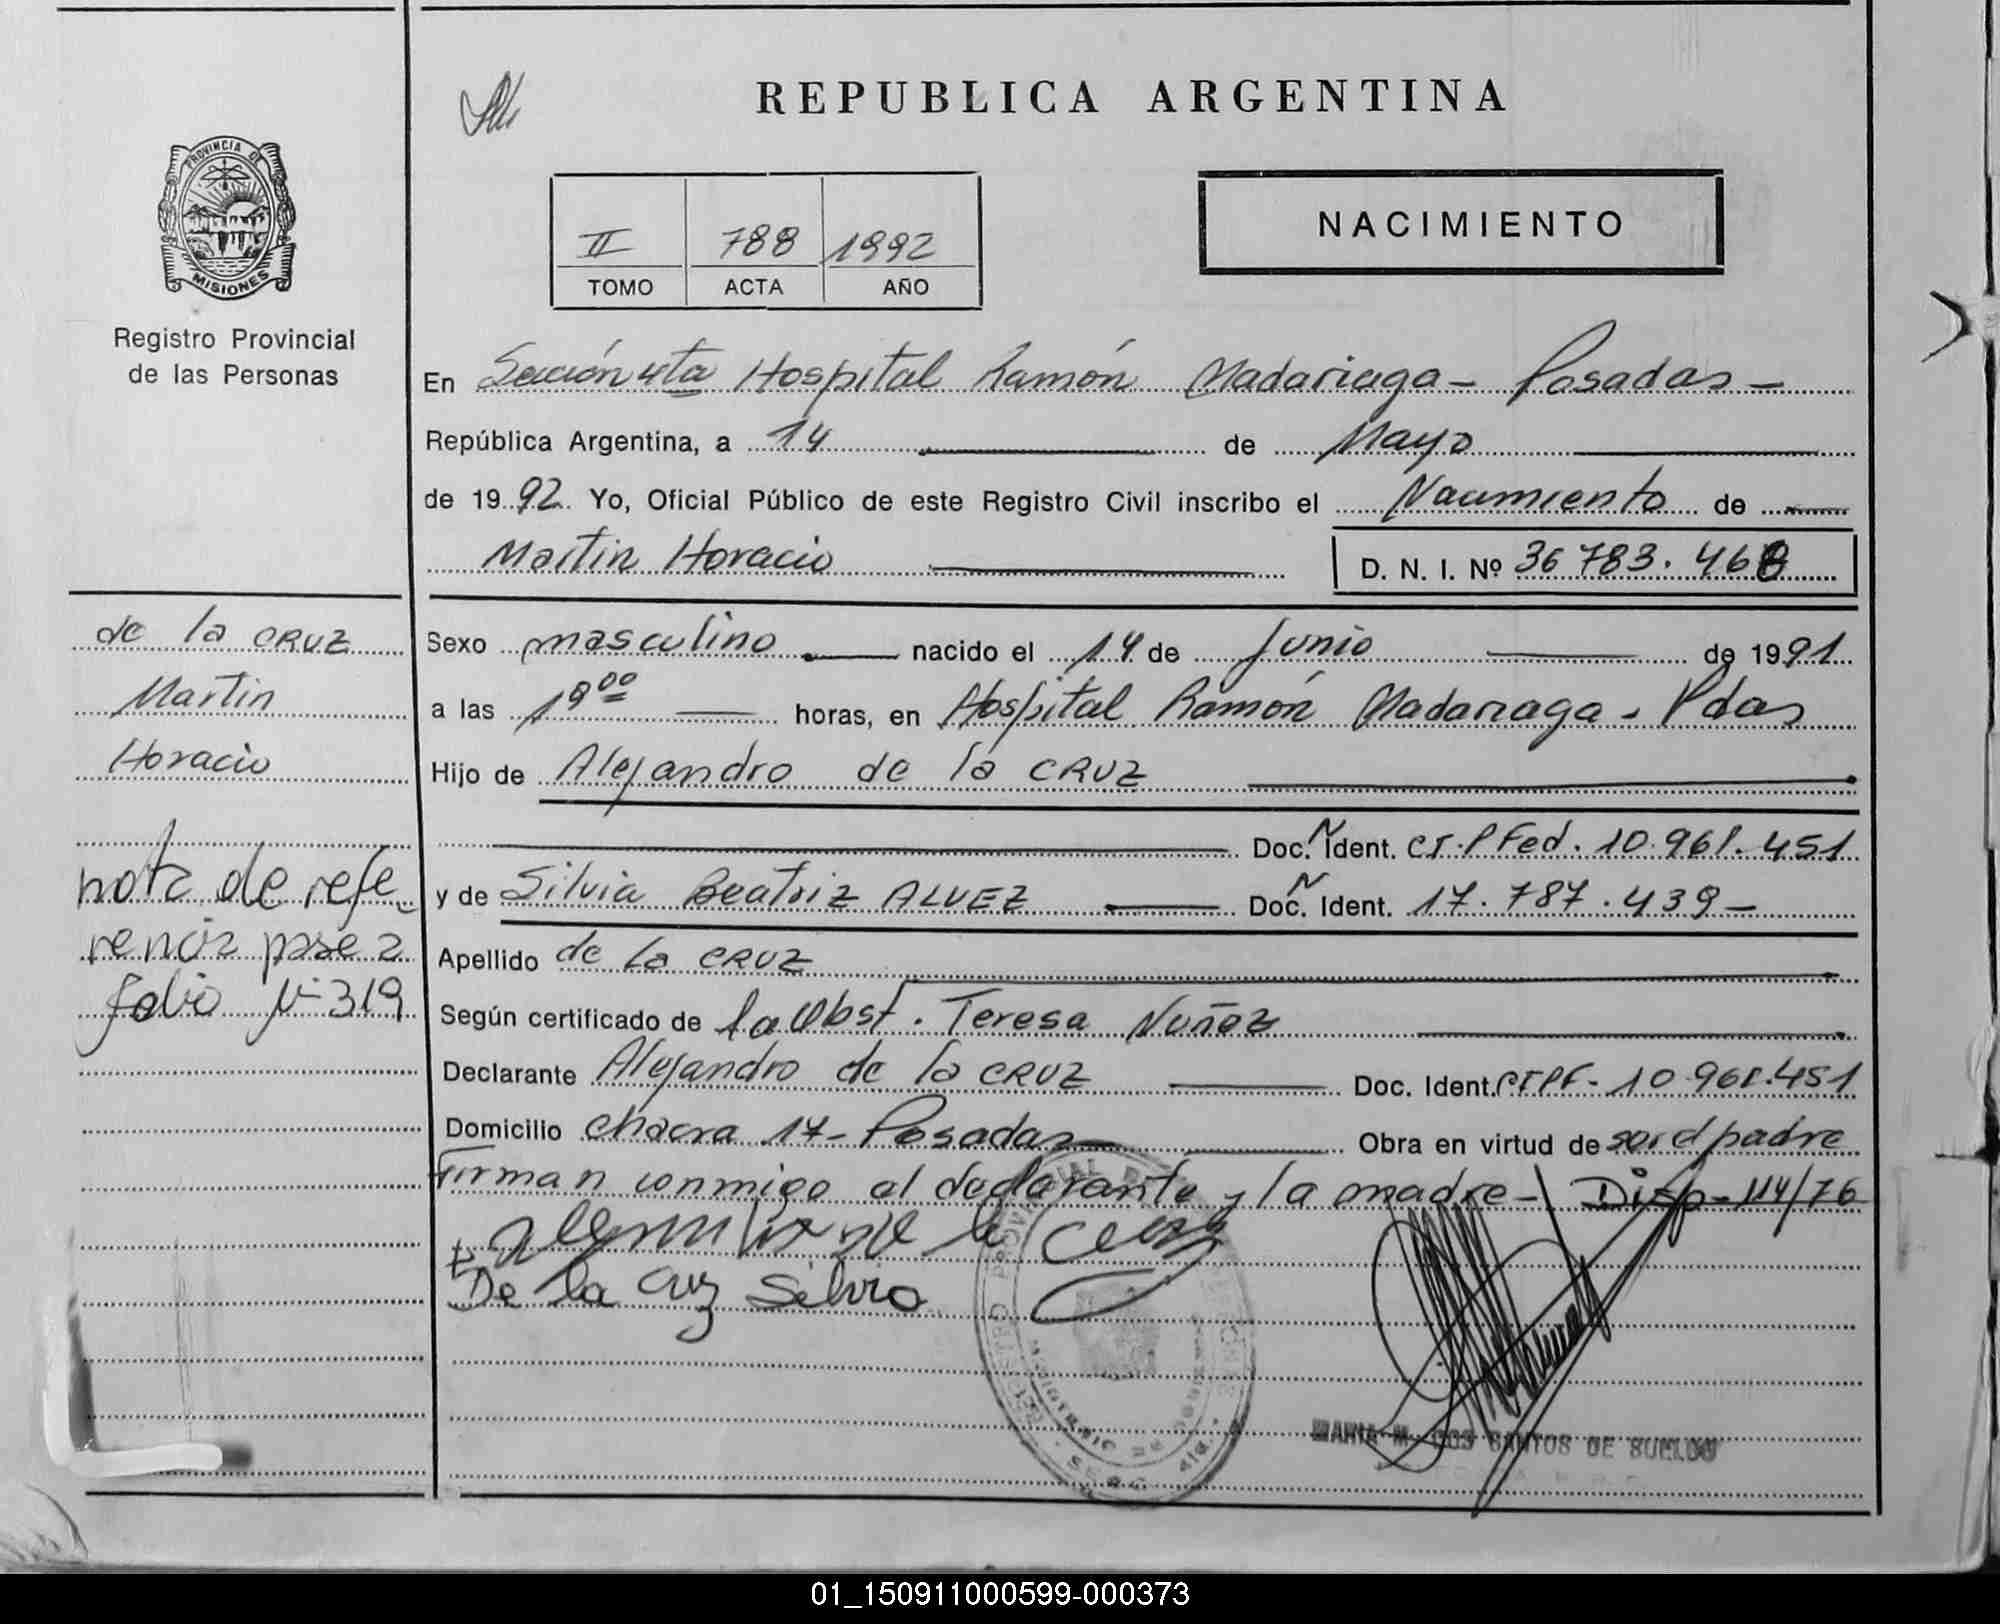 REPUBLICA ARGENTINA
PROVINCIA DE
MISIONES
Registro Provincial
de las Personas
NACIMIENTO
II 788 1992
TOMO ACTA AÑO
En Sección 4ta Hospital Ramón Madariaga - Posadas -
República Argentina, a 14 de Mayo
de 1992 Yo, Oficial Público de este Registro Civil inscribo el Nacimiento de
Martin Horacio D. N. I. Nº 36 783. 468
de la CRUZ
Martin
Horacio
nota de refe
rencia pase a
folio Nº 319
Sexo masculino nacido el 14 de Junio de 1991
a las 19 00 horas, en Hospital Ramón Madariaga - Pdas
Hijo de Alejandro de la CRUZ
Doc. Ident. CI. P Fed. 10.961.451
y de Silvia Beatriz ALVEZ Doc. Ident. 17. 787. 439 -
Apellido de la CRUZ
Según certificado de la Obst. Teresa Nuñez
Declarante Alejandro de la CRUZ Doc. Ident. CIPF - 10.961.451
Domicilio chacra 17 - Posadas Obra en virtud de ser el padre
Firman conmigo el declarante y la madre - Disp - 114/76
De la Cruz Silvia
MARIA M. DOS SANTOS DE
01_150911000599-000373